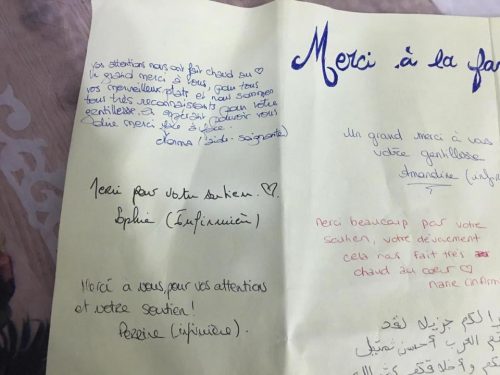 Merci à la fa
vos attentions nous ont fait chaud au ♡
le grand merci à vous, pour tous
vos merveilleux plats et nous sommes
tous très reconnaissants pour votre
gentillesse. en espérant pouvoir vous
dire merci face à face.
(aide-soignante)
Merci pour votre soutien. ♡.
Sophie (Infirmière)
Merci a vous, pour vos attentions
et votre soutien!
(infirmière).
Un grand merci à vous
votre gentillesse
Amandine (infir
Merci beaucoup par votre
soutien, votre dévouement
cela nous fait très
chaud au coeur ♡
Marie (infirmi
لكم جزيلا لقد
العرب أحسن تمثيل
كم وأخلاقكم